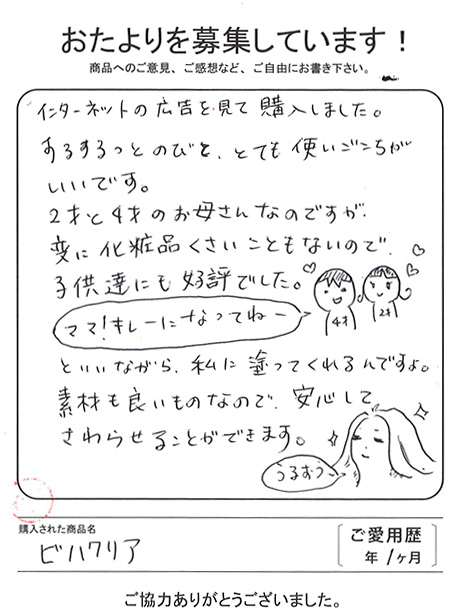 おたよりを募集しています！
商品へのご意見、ご感想など、ご自由にお書き下さい。
インターネットの広告を見て購入しました。
するするっとのびて、とても使いごこちが
いいです。
2才と4才のお母さんなのですが、
変に化粧品くさいこともないので、
子供達にも好評でした。
ママ！キレーになってねー
4才
2才
といいながら、私に塗ってくれるんですよ。
素材も良いものなので、安心して
さわらせることができます。
うるおう〜
購入された商品名
ビハクリア
ご愛用歴
年 1ヶ月
ご協力ありがとうございました。